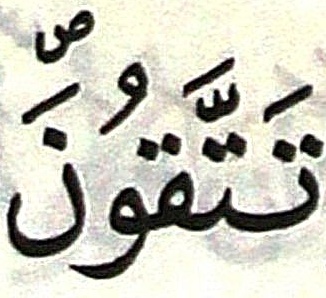 تَتَّقُونَۙ